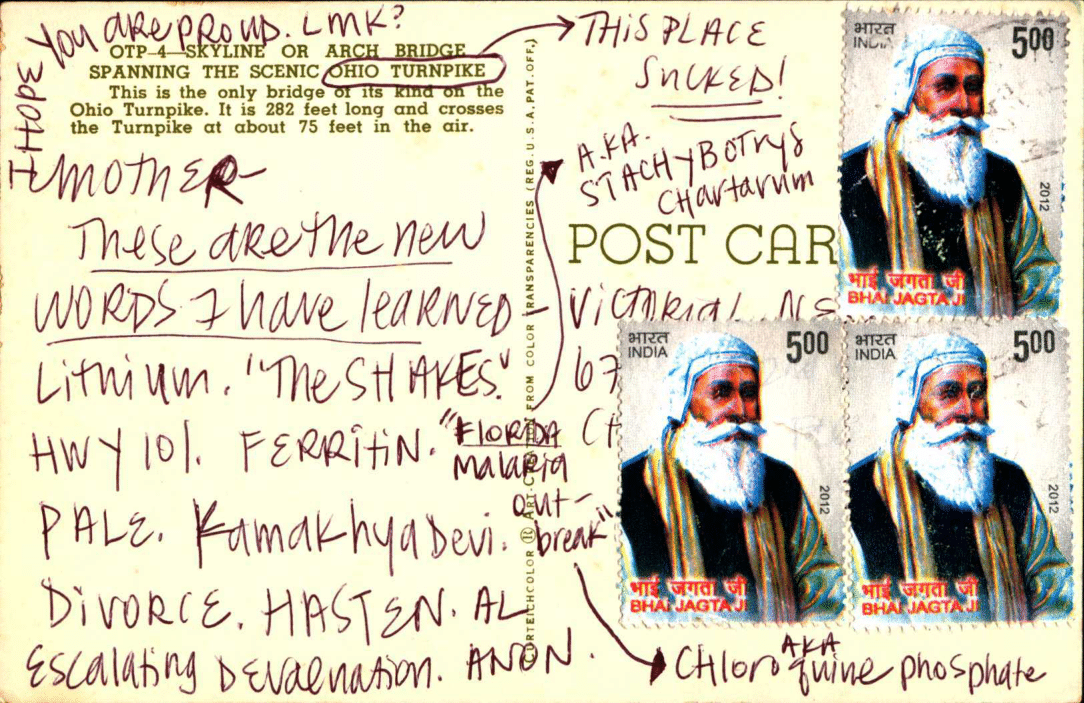 You are proud. LMK?
I HOPE
OTP-4—SKYLINE OR ARCH BRIDGE
SPANNING THE SCENIC OHIO TURNPIKE
This is the only bridge of its kind on the
Ohio Turnpike. It is 282 feet long and crosses
the Turnpike at about 75 feet in the air.
MOTHER-
These are the new
WORDS I have learned-
Lithium. "The SHAKES."
HWY 101. FERRITIN. "FLORIDA
malaria
out-
break"
PALE. Kamakhya Devi.
DIVORCE. HASTEN. AL
ANON.
Escalating
CURTEICHCOLOR ® ART-C FROM COLOR TRANSPARENCIES (REG. U.S.A. PAT. OFF.)
THIS PLACE
SUCKED!
A.KA.
STACHYBOTRYS
Chartarum
POST CAR
VICTORIA
67
CH
AKA
Chloroquine phosphate
भारत
INDIA
500
2012
भाई जगता जी
BHAI JAGTA JI
भारत
INDIA
500
2012
भाई जगता जी
BHAI JAGTA JI
भारत
INDIA
500
2012
भाई जगता जी
BHAI JAGTA JI